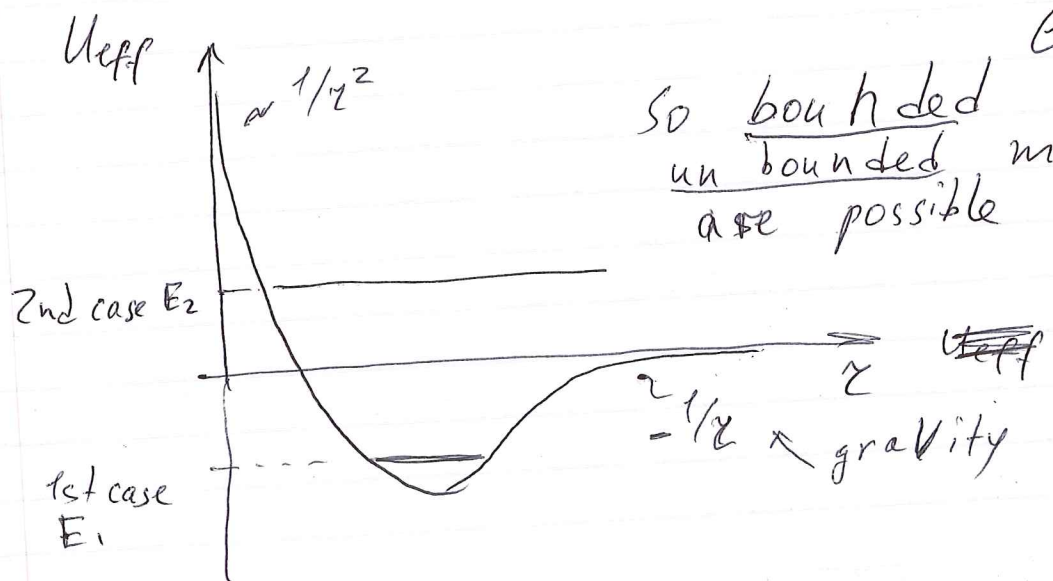 Ueff
~ 1/r²
so bounded
un bounded m
are possible
2nd case E₂
r
Ueff
~
- 1/r ↖ gravity
1st case
E₁